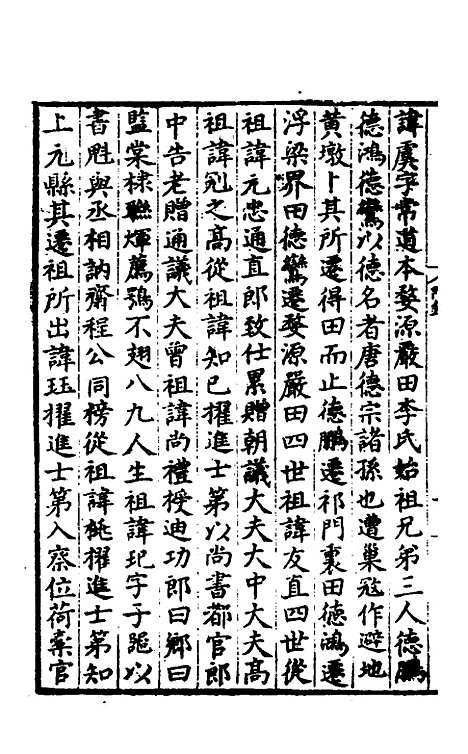 諱虞字常道本婺源嚴田李氏始祖兄弟三人德鵬
德鴻德鸞以德名者唐德宗諸孫也遭巢寇作避地
黄墩卜其所遷得田而止德鵬遷祁門裏田德鴻遷
浮梁界田德鸞遷婺源嚴田四世祖諱友直四世從
祖諱元忠通直郎致仕累贈朝議大夫大中大夫高
祖諱冠之高從祖諱知已擢進士第以尚書都官郎
中告老贈通議大夫曾祖諱尚禮授迪功郎曰鄉曰
監棠棣聯煇薦鶚不翅八九人生祖諱玘字子以
書魁與丞相訥齋程公同榜從祖諱擢進士第知
上元縣其遷祖所出諱珏擢進士第入察位荷橐官